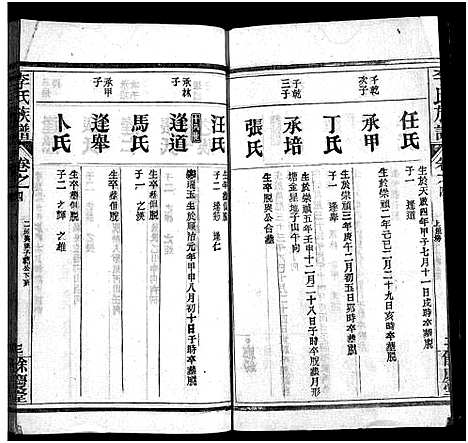 李氏族譜
任氏
生於天啟四年甲子七月十一日戌時卒塟脫
子一 逢道
子乾次子
承甲
生於崇禎二年己巳二月二十九日亥時卒塟脫
丁氏
生於崇禎三年庚午二月初五日
子乾三子
承培
生於崇禎五年壬申十二月二十八日子時卒脫塟月形
塘金星塆子山午向
張氏
生卒脫與公合塟
汪氏
子二 逢 逢仁
承林子
逢道
生於順治元年甲申八月初十日子時卒塟脫
馬氏
生卒塟脫
承甲子
逢舉
生卒塟脫
子二 之漢
卜氏
生卒塟脫
子二 之輝 之雄
李氏族譜
卷之四
餘慶堂